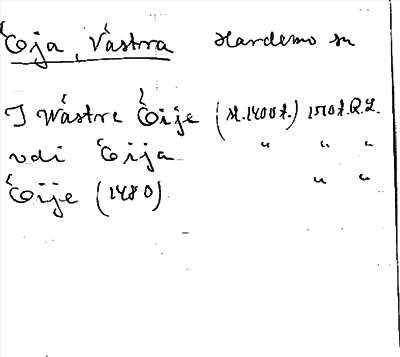 Eja, Västra Hardemo sn
I Wästre Eije (sl.1400t.) 1510t. R.L.
vdi Eija " " "
Eije (1480) " "